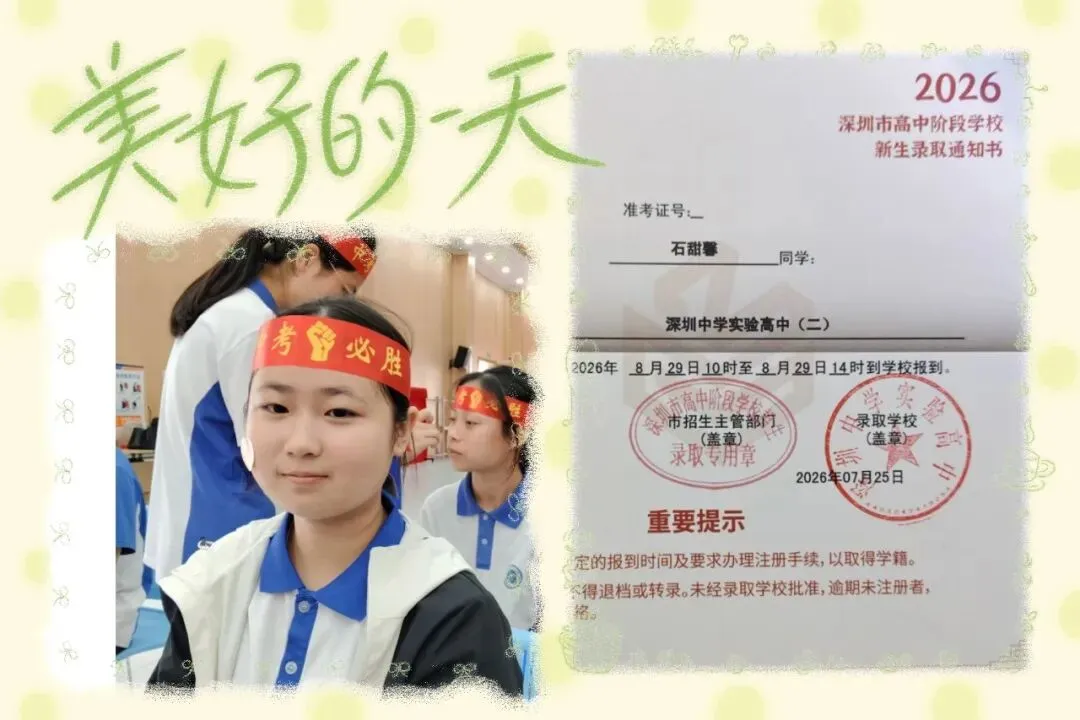 美好的一天
考 必胜
2026
深圳市高中阶段学校
新生录取通知书
准考证号:
石甜馨 同学:
深圳中学实验高中（二）
2026年 8月29日10时至 8月29日14时到学校报到。
深圳市高中阶段学校招生
市招生主管部门
(盖章)
录取专用章
深圳中学实验高中
录取学校
(盖章)
2026年07月25日
重要提示
定的报到时间及要求办理注册手续,以取得学籍。
不得退档或转录。未经录取学校批准,逾期未注册者,
格。